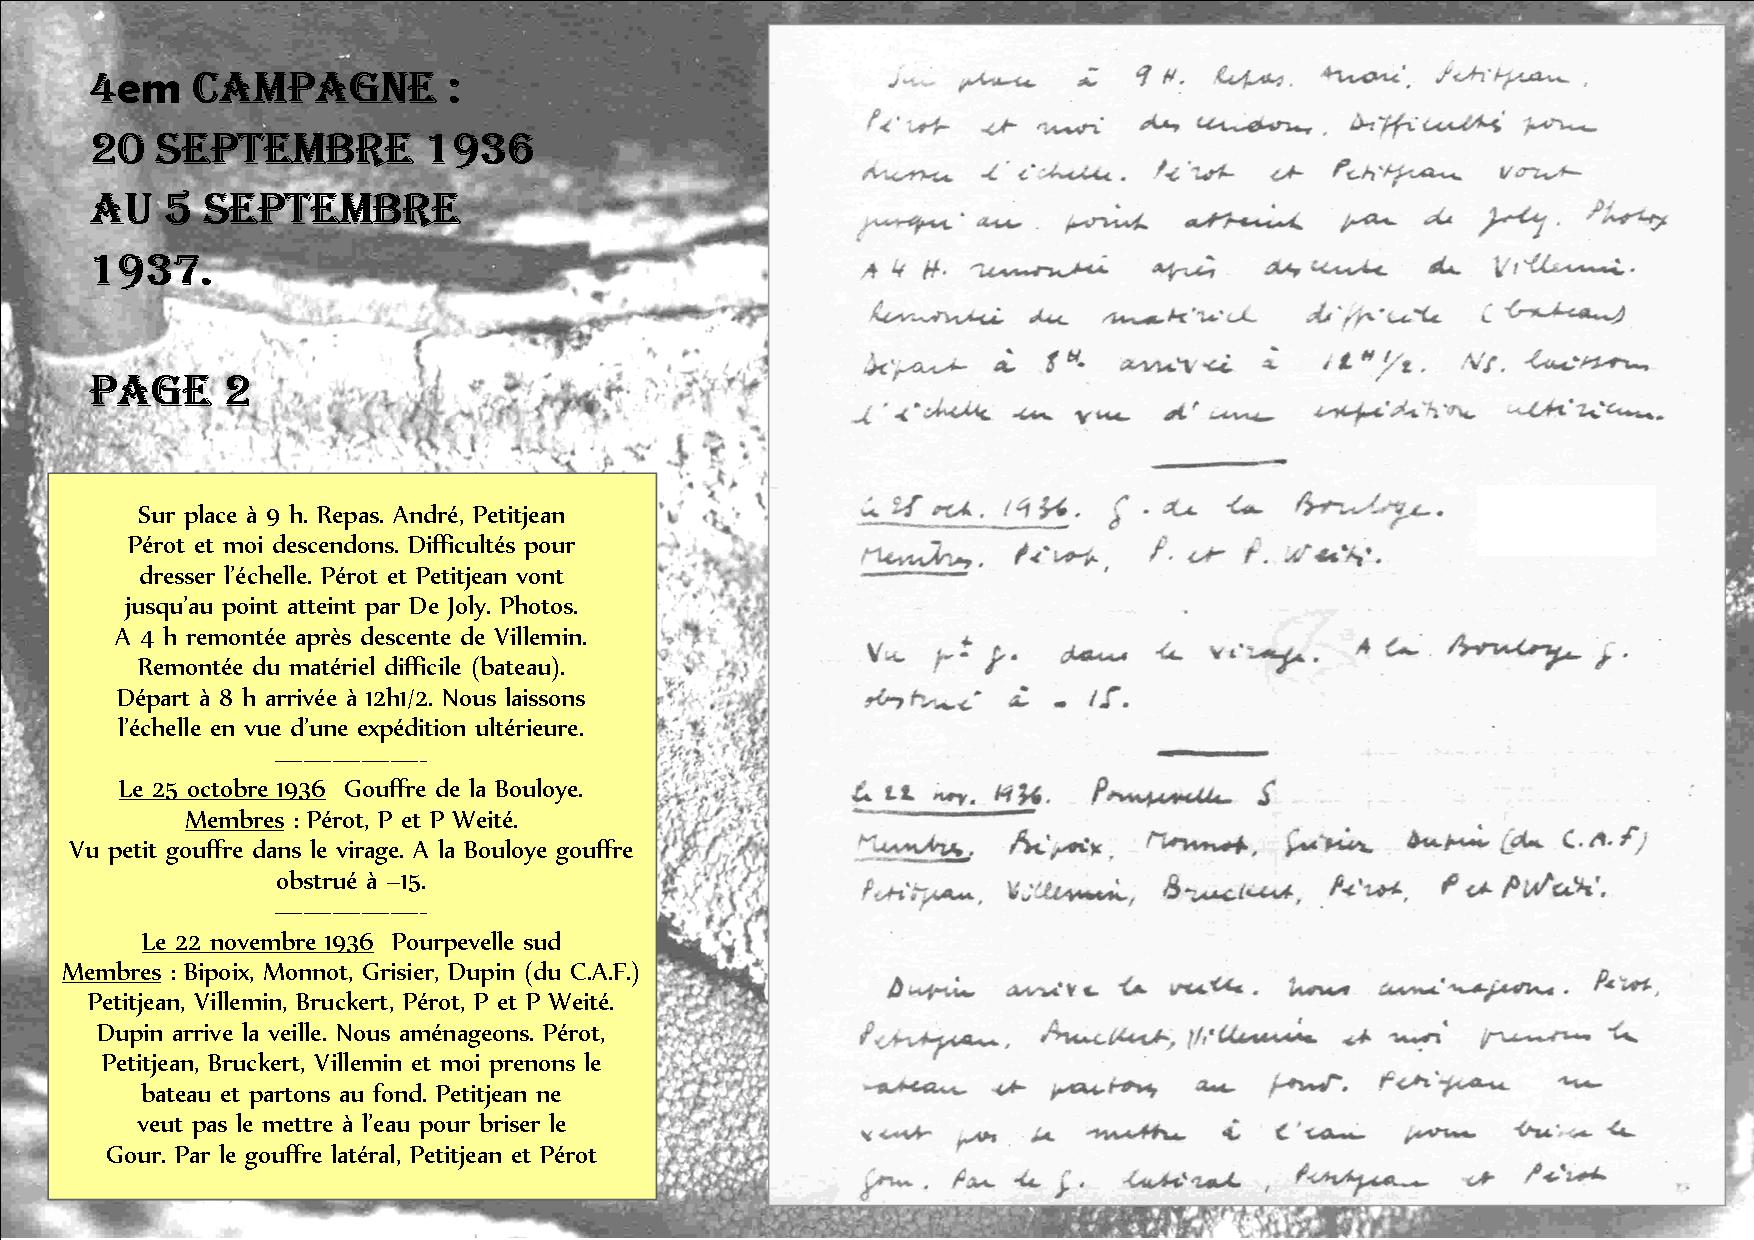 4em CAMPAGNE :
20 SEPTEMBRE 1936
AU 5 SEPTEMBRE
1937.
PAGE 2
Sur place à 9 h. Repas. André, Petitjean
Pérot et moi descendons. Difficultés pour
dresser l'échelle. Pérot et Petitjean vont
jusqu'au point atteint par De Joly. Photos.
A 4 h remontée après descente de Villemin.
Remontée du matériel difficile (bateau).
Départ à 8 h arrivée à 12h1/2. Nous laissons
l'échelle en vue d'une expédition ultérieure.
Le 25 octobre 1936 Gouffre de la Bouloye.
Membres : Pérot, P et P Weité.
Vu petit gouffre dans le virage. A la Bouloye gouffre
obstrué à –15.
Le 22 novembre 1936 Pourpevelle sud
Membres : Bipoix, Monnot, Grisier, Dupin (du C.A.F.)
Petitjean, Villemin, Bruckert, Pérot, P et P Weité.
Dupin arrive la veille. Nous aménageons. Pérot,
Petitjean, Bruckert, Villemin et moi prenons le
bateau et partons au fond. Petitjean ne
veut pas le mettre à l'eau pour briser le
Gour. Par le gouffre latéral, Petitjean et Pérot
Sur place à 9 H. Repas. André, Petitjean,
Pérot et moi descendons. Difficultés pour
dresser l'échelle. Pérot et Petitjean vont
jusqu'au point atteint par de Joly. Photos
A 4 H. remontée après descente de Villemin.
Remontée du matériel difficile (bateau)
Départ à 8H. arrivée à 12H1/2. NS. laissons
l'échelle en vue d'une expédition ultérieure.
le 25 oct. 1936. g. de la Bouloye.
Membres. Pérot, P. et P. Weité.
Vu pt g. dans le virage. A la Bouloye g.
obstrué à - 15.
le 22 nov. 1936. Pourpevelle S
Membres. Bipoix, Monnot, Grisier Dupin (du C.A.F)
Petitjean, Villemin, Bruckert, Pérot, P et P Weité.
Dupin arrive la veille. Nous aménageons. Pérot,
Petitjean, Bruckert, Villemin et moi prenons le
bateau et partons au fond. Petitjean ne
veut pas se mettre à l'eau pour briser le
gour. Par le g. latéral, Petitjean et Pérot